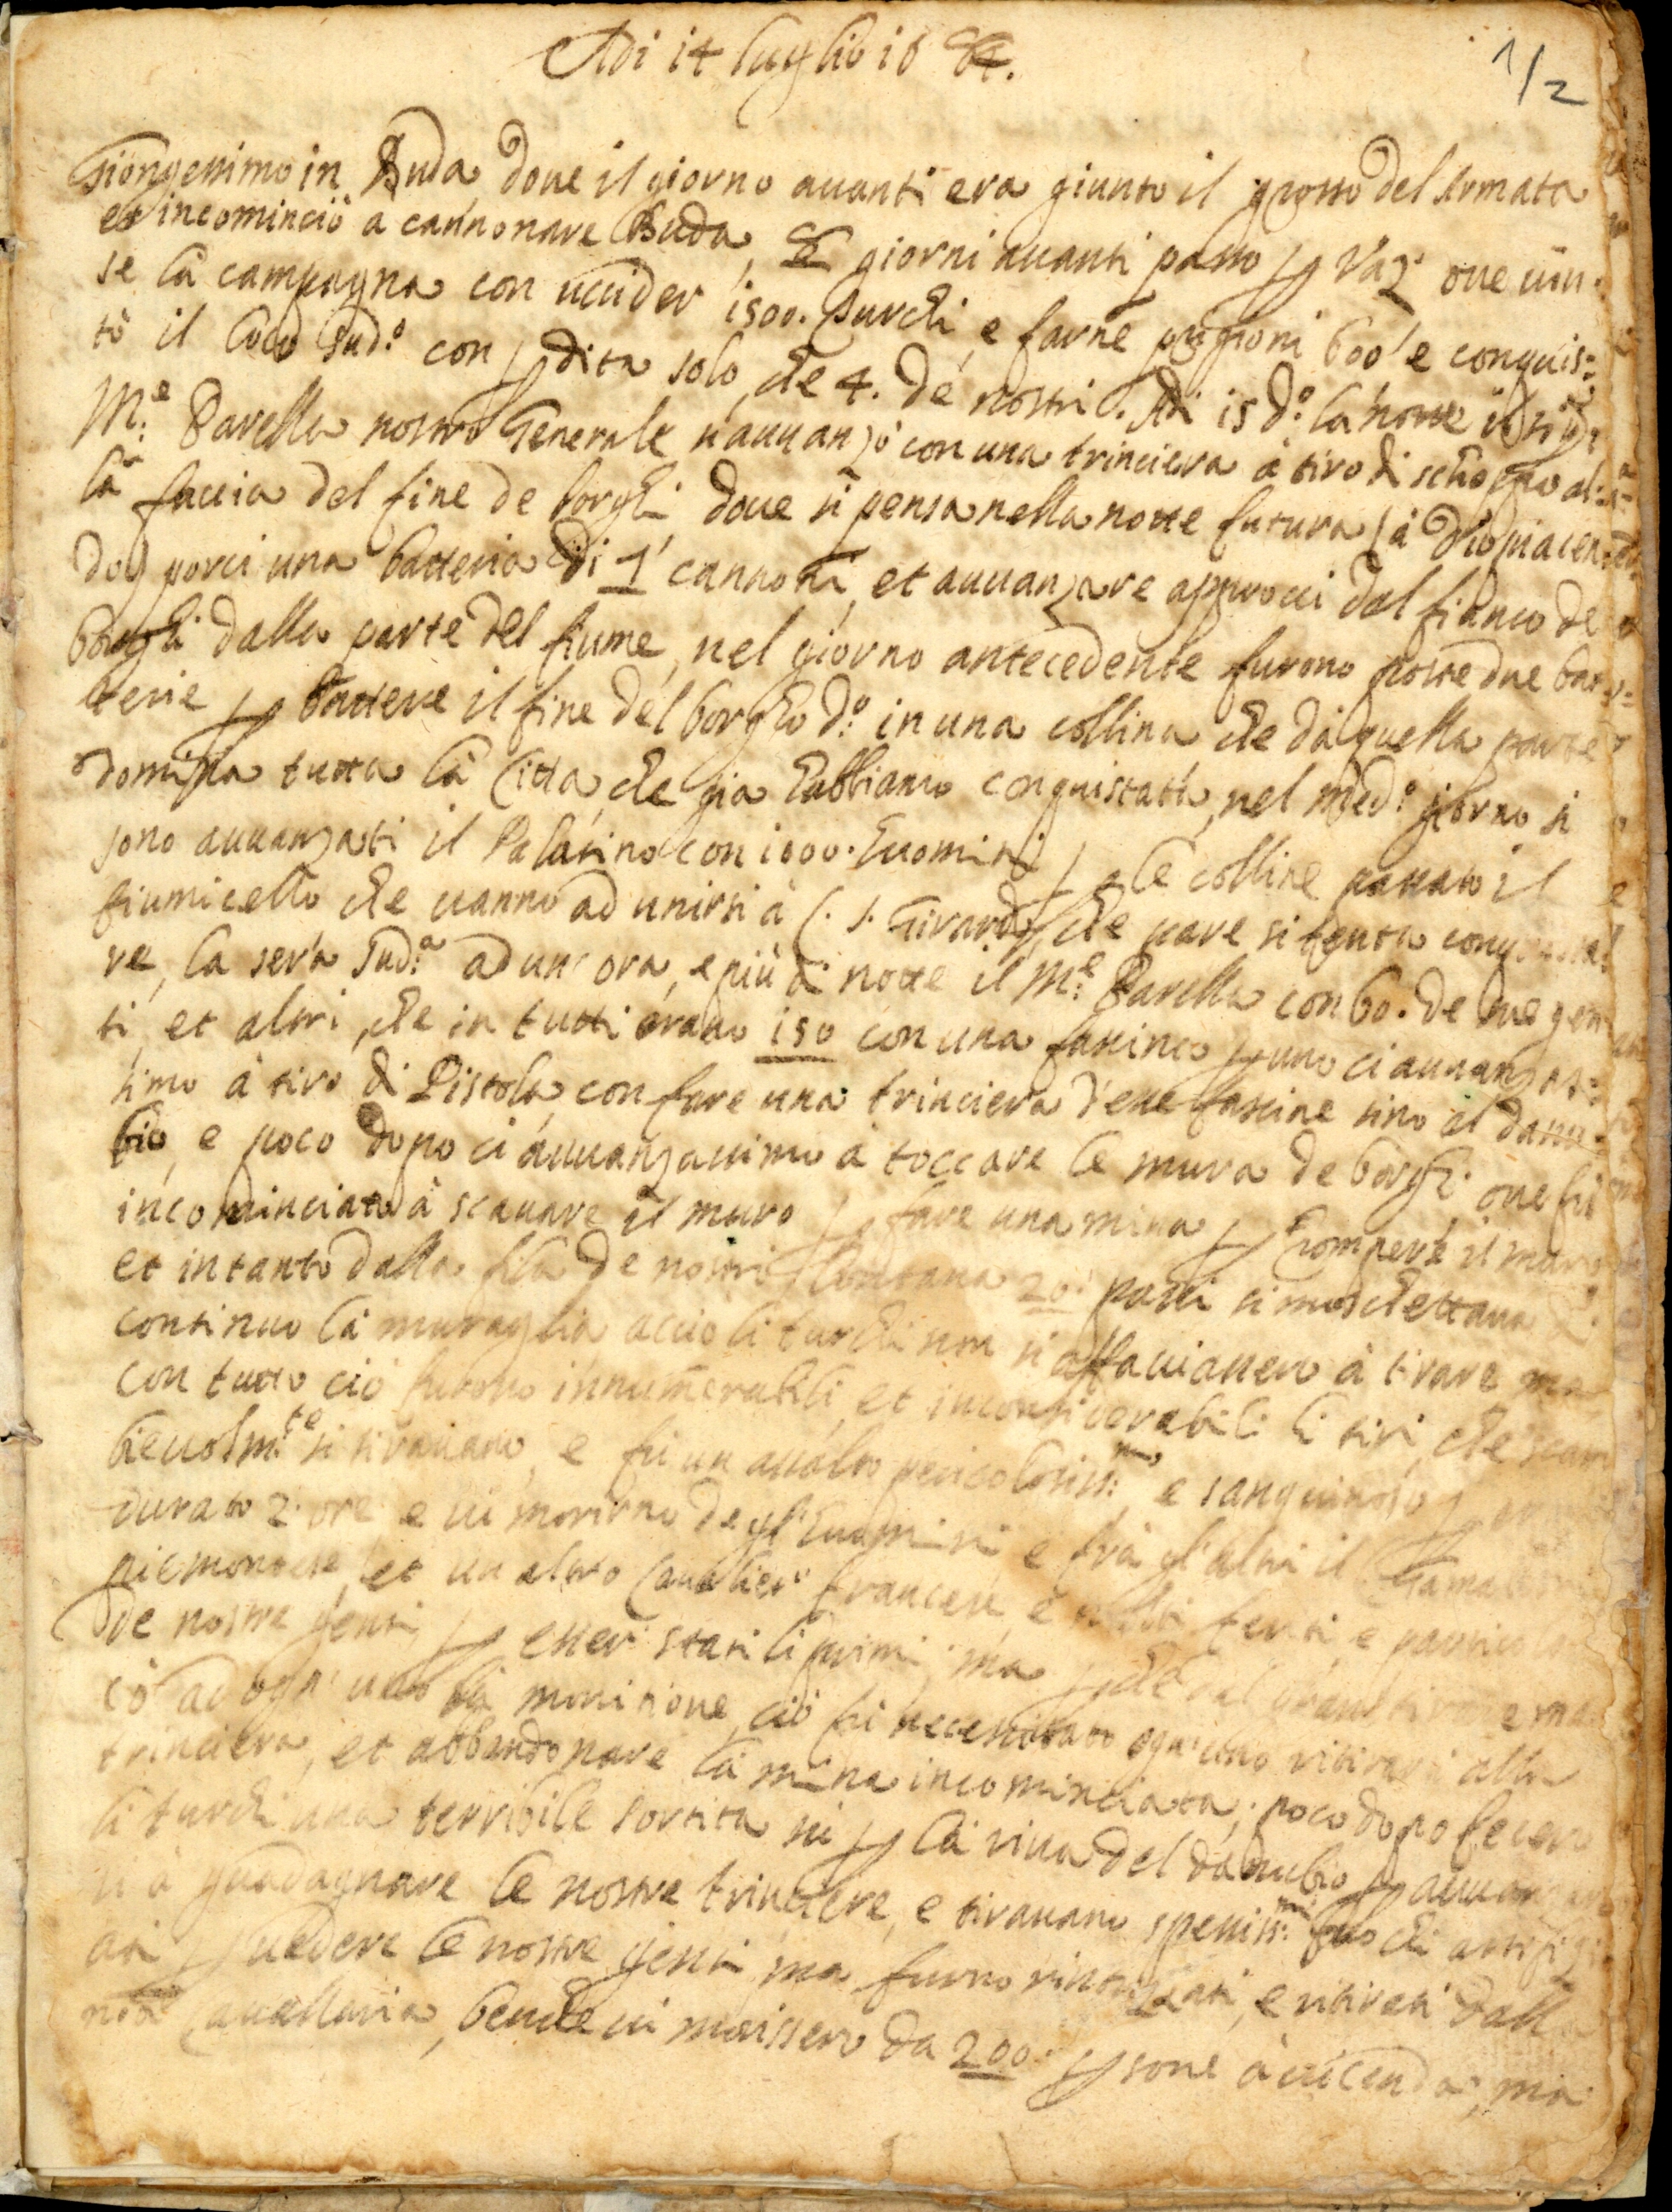 Adi 14 luglio 1684.
1/2
Giongessimo in Buda, doue il giorno auanti era giunto il grosso del Armata
et incominciò a cannonare Buda, 8 giorni auanti passo p Vaz. oue uin-
se la campagna con uccider 1500. Turchi, e farne prigioni 600 e conquis=
tò il loco sud.º con pdita solo, che 4. de nostri. Adi 15 d.º la notte il sig.r
M.e Parella nostro Generale s'auuanzò con una trinciera à tiro di schioppo al=
la faccia del fine de borghi doue si pensa nella notte futura (à Dio piacen=
do) porci una batteria di cannoni, et auuanzare approcci dal fianco de
borghi dalla parte del fiume, nel giorno antecedente furono poste due bat=
terie p battere il fine del borgho d.º in una collina, che da quella parte
domina tutta la Citta, che gia habbiamo conquistata, nel med.º giorno si
sono auuanzati il Palatino con 1000. huomini p le colline passato il
fiumicello che uanno ad unirsi à S. Girardo, che pare si tenta
re, la sera sud.a ad un' ora, e più di notte il M.e Parella con 60. de sue gen
ti et altri, che in tutti erano 150 con una fassina p uno ci auuanzas=
simo à tiro di Pistola, con fare una trinciera d'esse fassine sino al danu=
bio, e poco dopo ci auuanzauimo à toccare le mura de borghi. oue fù
incominciato à scauare il muro p fare una mina p romperle il muro
et intanto dalla fila de nostri lontana 20. passi si moschettaua
continuo la muraglia accio li turchi non si affacciassero à tirare ma
con tutto ciò furono innumerabili, et inconsiderabili li tiri, che scam
bieuolm.te si tirauano, e fù un assalto pericolosiss.mo, e sanguinoso p
durato 2. ore e ui morirno degl'huomini e frà gl'altri il
piemontese, et un altro Caualier francese, e molti feriti, e
de nostre genti, p esser stati li primi, ma p che dal
cò ad ogn' uno la monitione, ciò fù necessitato ogn'uno ritirarsi alla
trinciera, et abbandonare la mina incominciata; poco dopo fecero
li turchi una terribile sortita sù p la riua del danubio p auuanzar
si à guadagnare le nostre trinciere, e tirauano spessiss.mi fuochi artifizi
ati p uedere le nostre genti ma furno rintuzzati, e ritirati dalla
nrã Cauallaria, benche ui morissero da 200. psone à uicenda; ma